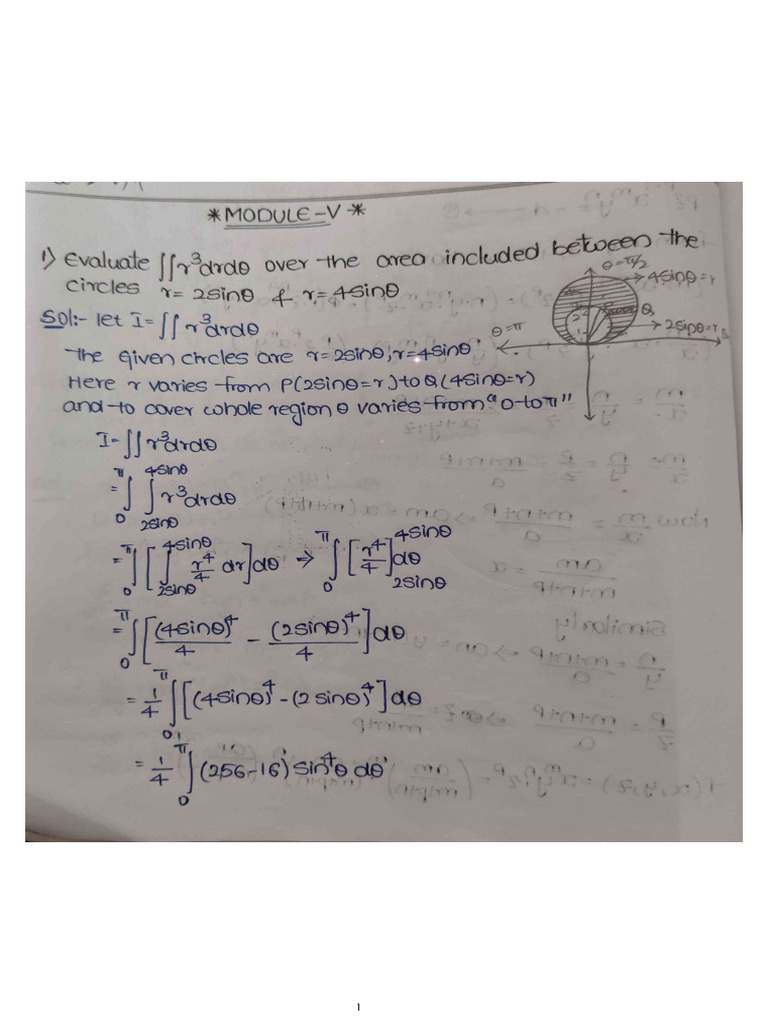 *MODULE-V*
1) Evaluate ∬r³drdθ over the area included between the
circles r=2sinθ & r=4sinθ
θ=π/2
4sinθ=r
θ=π
2
1
Q
2sinθ=r
Sol:- let I=∬r³drdθ
The given circles are r=2sinθ, r=4sinθ
Here r varies from P(2sinθ=r) to Q(4sinθ=r)
and to cover whole region θ varies from "0 to π"
I=∬r³drdθ
=∫₀^π ∫_{2sinθ}^{4sinθ} r³drdθ
=∫₀^π [∫_{2sinθ}^{4sinθ} r⁴/4 dr]dθ ⇒ ∫₀^π [r⁴/4]_{2sinθ}^{4sinθ} dθ
=∫₀^π [(4sinθ)⁴/4 - (2sinθ)⁴/4]dθ
=1/4 ∫₀^π [(4sinθ)⁴-(2sinθ)⁴]dθ
=1/4 ∫₀^π (256-16) sin⁴θ dθ
1